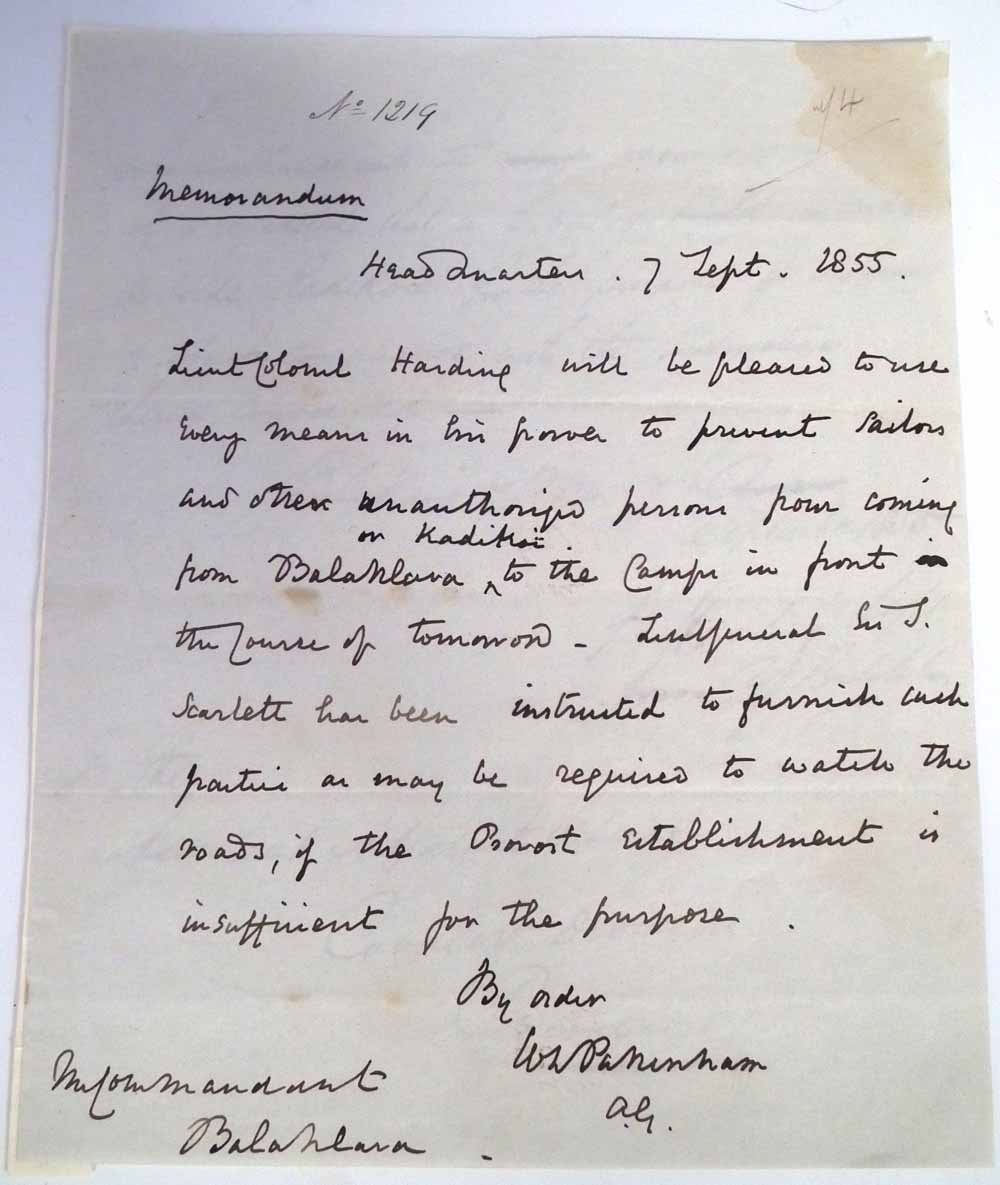 No 1219
Memorandum
Head Quarters . 7 Sept . 1855 .
Lieut Colonel Harding will be pleased to use
Every means in his power to prevent Sailors
and other unauthorized persons from coming
or Kadikoi
from Balaklava ^ to the Camps in front in
the Course of tomorrow - Lieut General Sir J.
Scarlett has been instructed to furnish such
parties as may be required to watch the
roads, if the Provost Establishment is
insufficient for the purpose .
By order
W L Pakenham
A.G.
The Commandant
Balaklava -